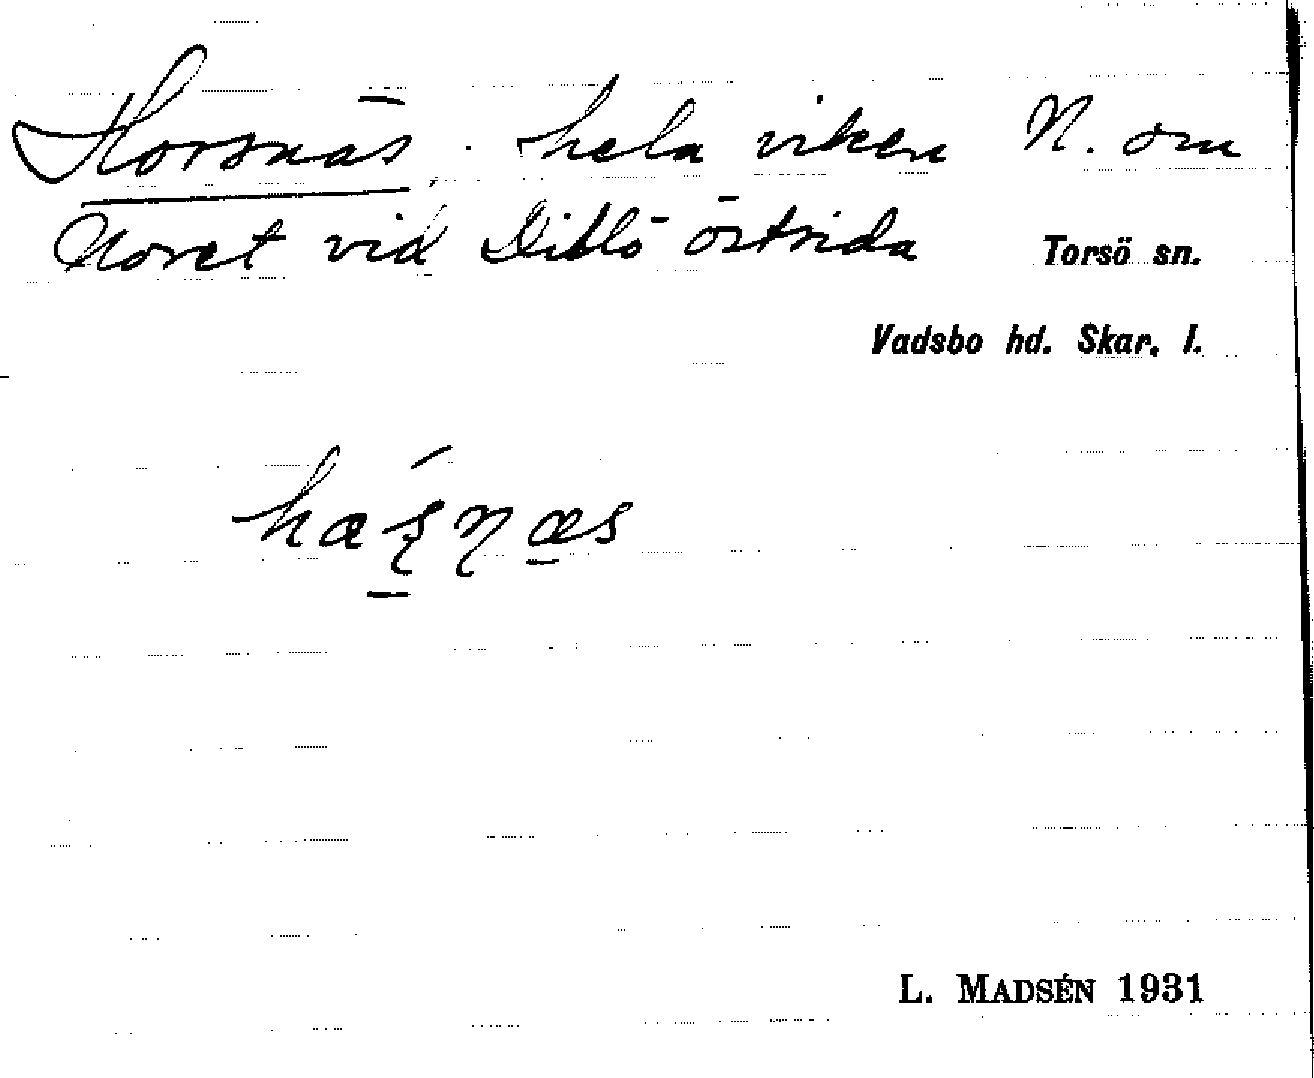 Horsnäs; hela viken N. om
Noret vid Dillö östsida
Torsö sn.
Vadsbo hd. Skar. l.
L. MADSÉN 1931